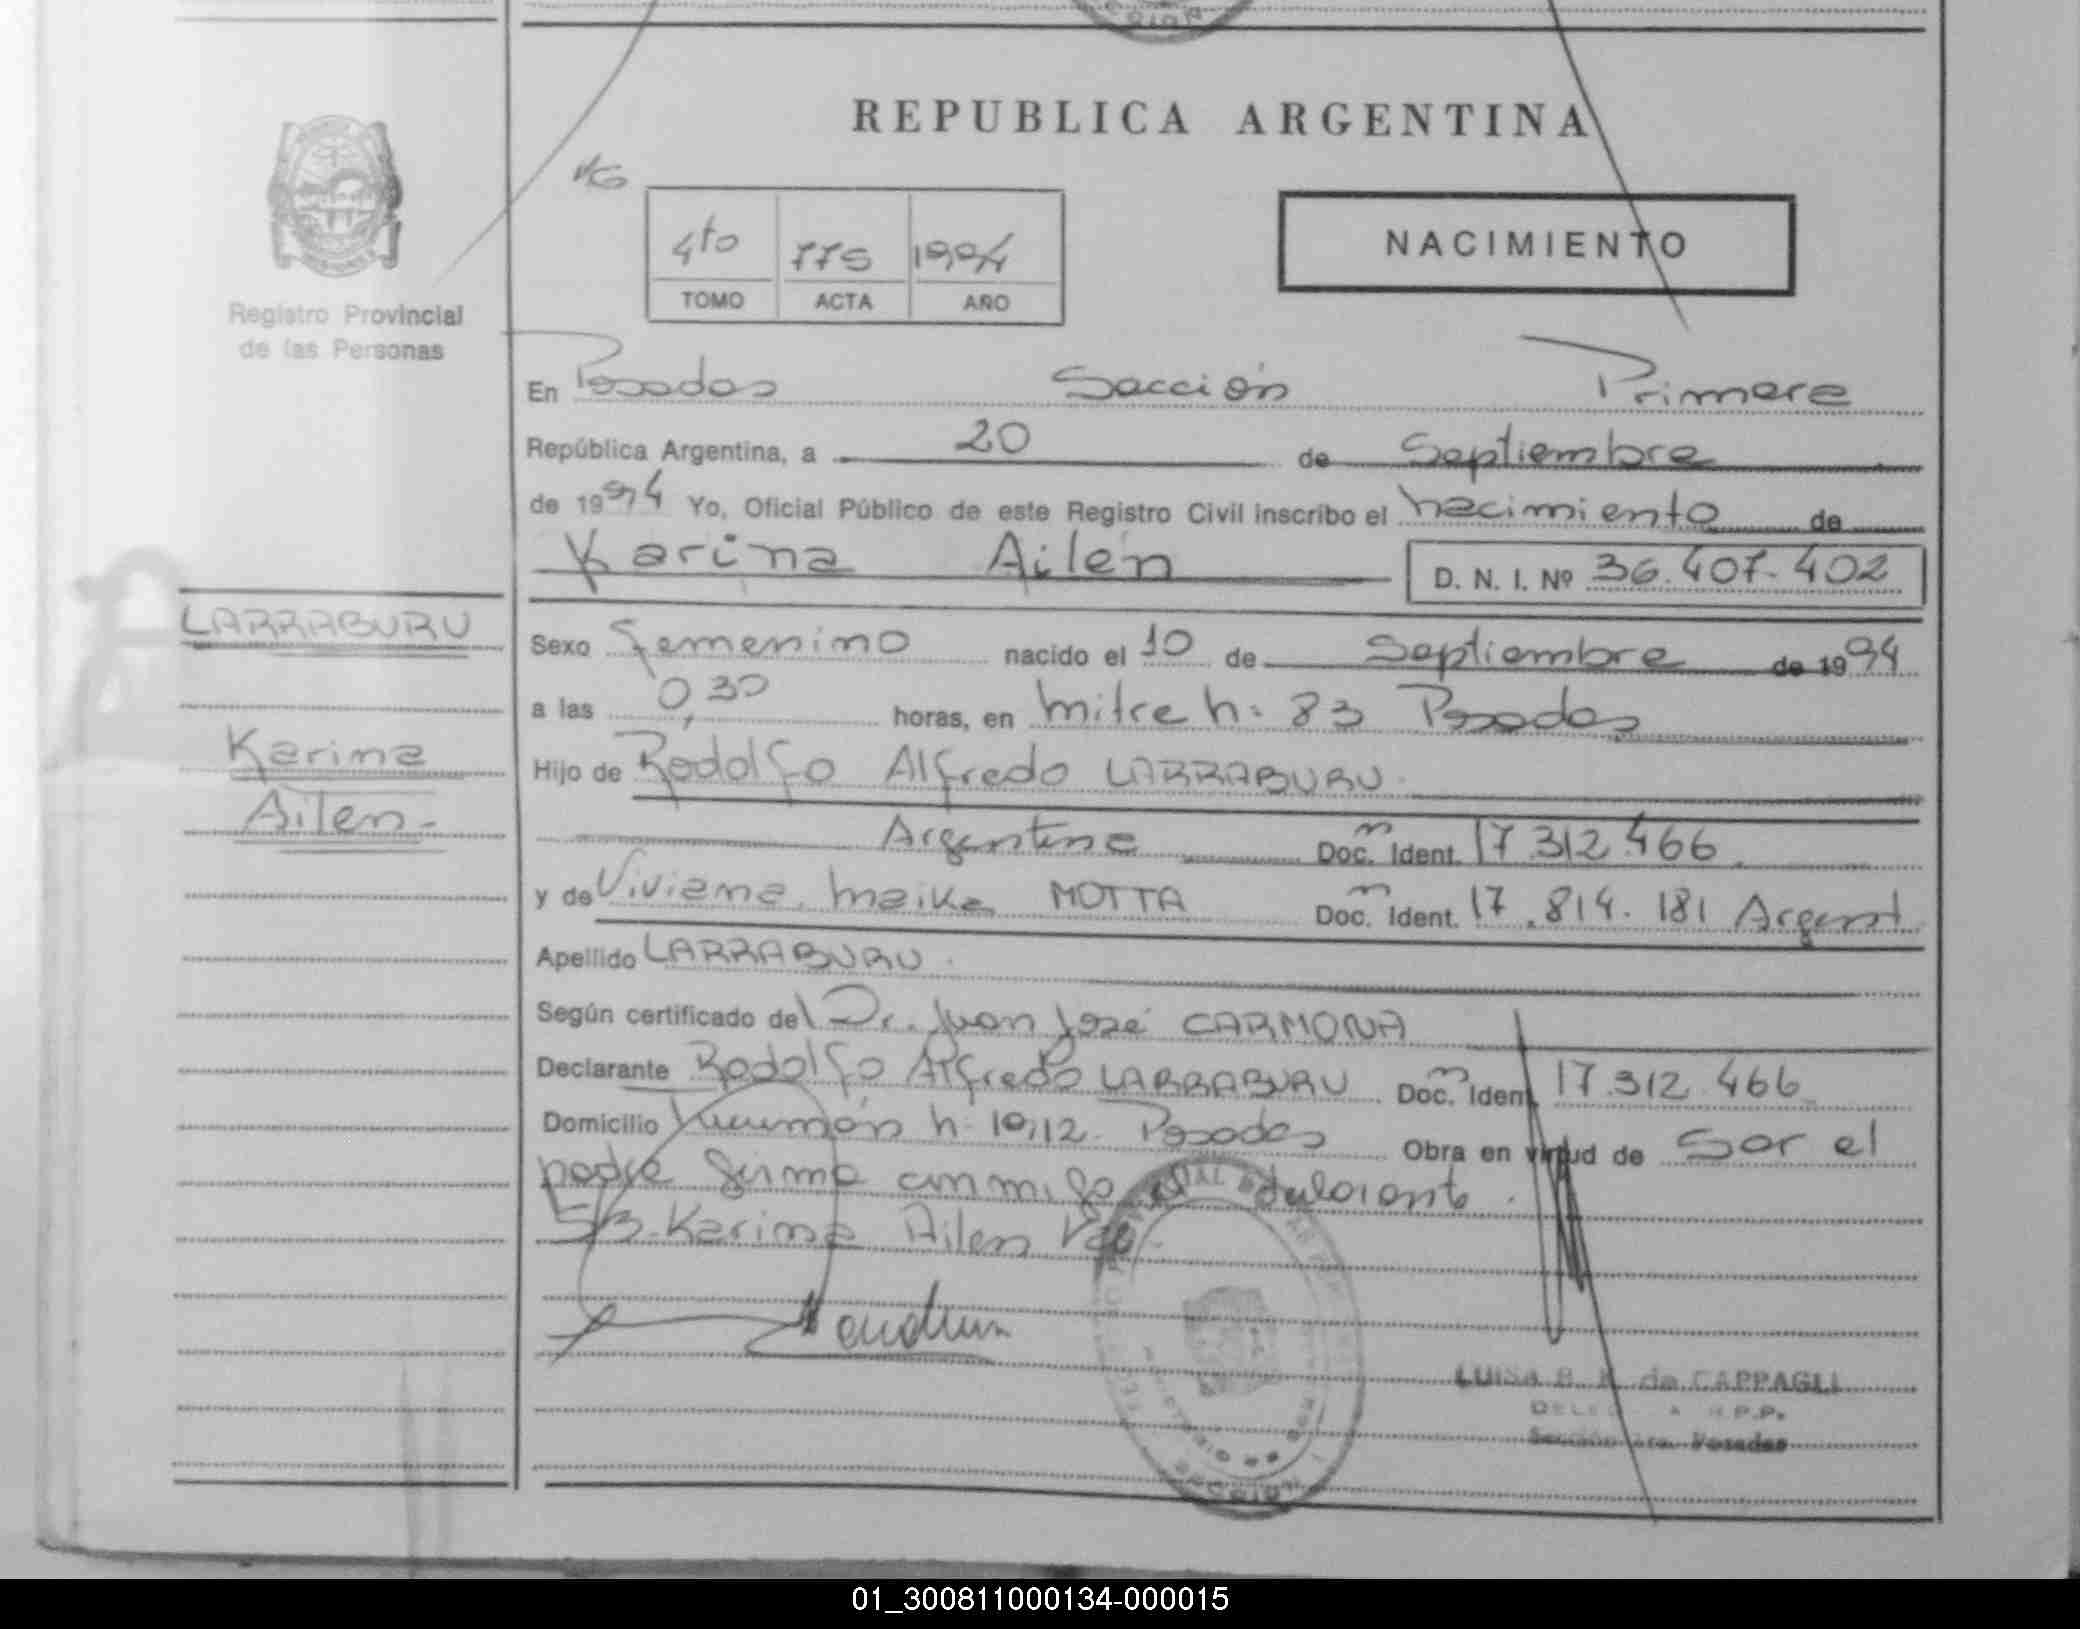 REPUBLICA ARGENTINA
4to 775 1994
TOMO ACTA AÑO
NACIMIENTO
Registro Provincial
de las Personas
En Posadas Sección Primera
República Argentina, a 20 de Septiembre
de 1994 Yo, Oficial Público de este Registro Civil inscribo el nacimiento de
Karina Ailén D. N. I. Nº 36.407.402
LARRABURU
Karina
Ailen-
Sexo femenino nacido el 10 de Septiembre de 1994
a las 0,30 horas, en mitre n: 83 Posadas
Hijo de Rodolfo Alfredo LARRABURU
Argentina Doc. Ident. 17.312.466
y de Viviana maika MOTTA Doc. Ident. 17.814.181 Argent
Apellido LARRABURU
Según certificado del Dr. Juan José CARMONA
Declarante Rodolfo Alfredo LARRABURU Doc. Ident. 17.312.466
Domicilio Posadas Obra en virtud de Ser el
padre firma conmigo
Karina Ailen
LUISA de CAPPAGLI
R.P.P.
Sección 1ra. Posadas
01_300811000134-000015